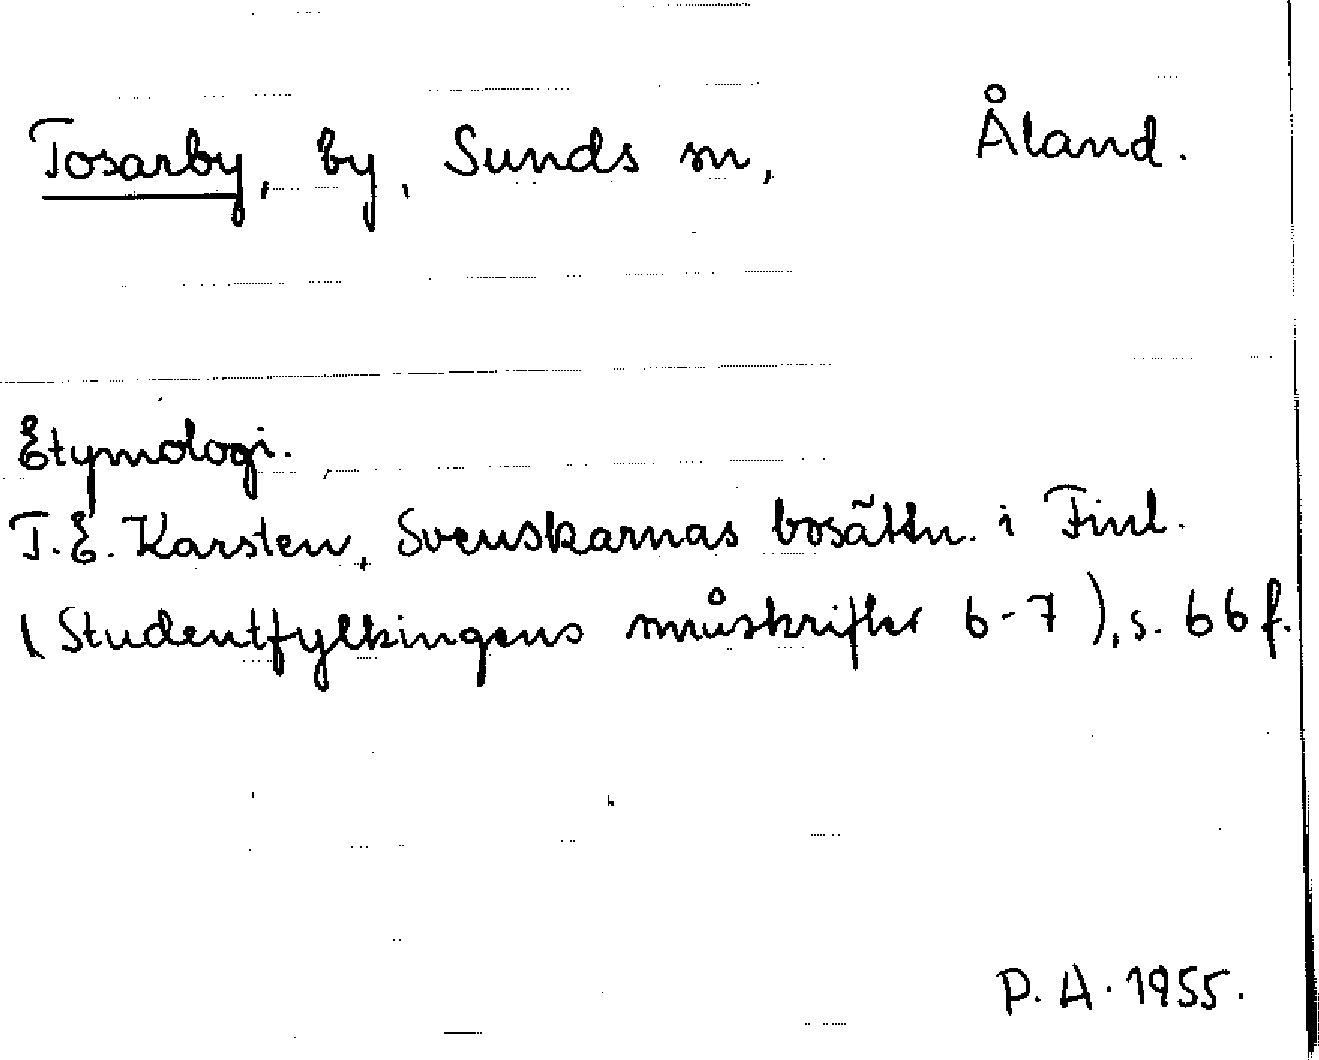 Tosarby, by, Sunds sn, Åland.
Etymologi.
T.E. Karsten, Svenskarnas bosättn. i Finl.
(Studentfylkingens småskrifter 6-7), s. 66 f.
P.A. 1955.